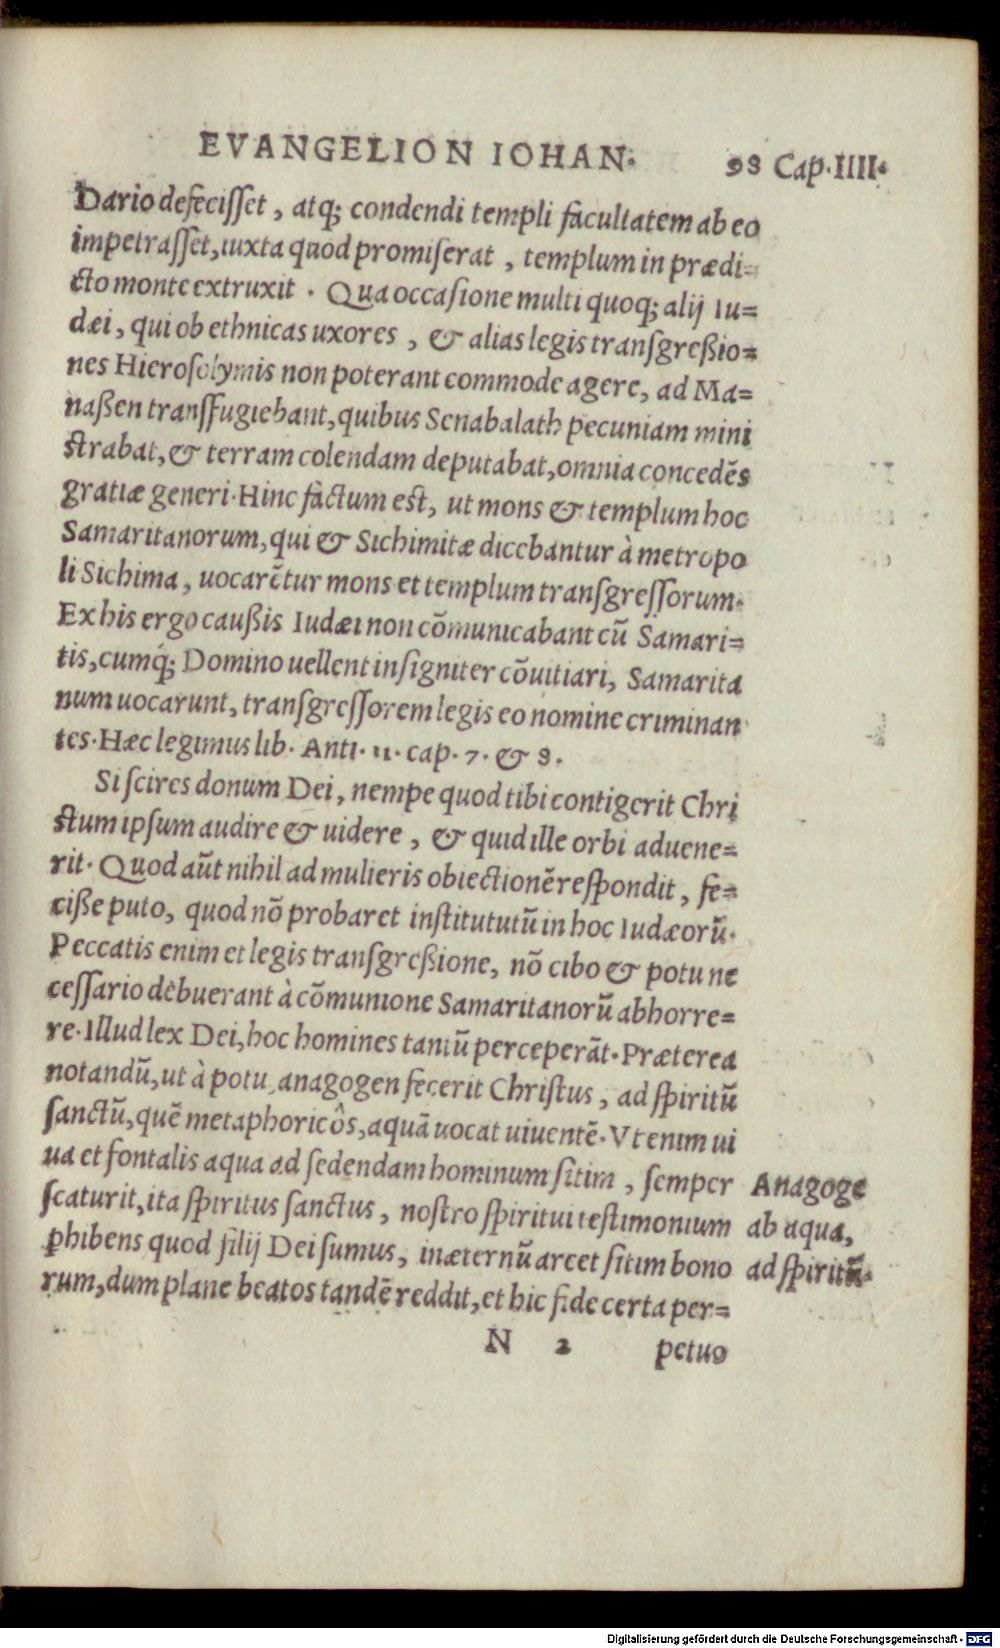 EVANGELION IOHAN. 98 Cap. IIII.
Dario defecisset, atq; condendi templi facultatem ab eo
impetrasset, iuxta quod promiserat, templum in prædi=
cto monte extruxit. Qua occasione multi quoq; alij Iu=
dæi, qui ob ethnicas uxores, & alias legis transgreßio=
nes Hierosolymis non poterant commode agere, ad Ma=
naßen transfugiebant, quibus Senabalath pecuniam mini
strabat, & terram colendam deputabat, omnia concedẽs
gratiæ generi. Hinc factum est, ut mons & templum hoc
Samaritanorum, qui & Sichimitæ dicebantur à metropo
li Sichima, uocarẽtur mons et templum transgressorum.
Ex his ergo caußis Iudæi non cõmunicabant cũ Samari=
tis, cumq́; Domino uellent insigniter cõuitiari, Samarita
num uocarunt, transgressorem legis eo nomine criminan
tes. Hæc legimus lib. Anti. 11. cap. 7. & 8.
Si scires donum Dei, nempe quod tibi contigerit Chri
stum ipsum audire & uidere, & quid ille orbi aduene=
rit. Quod aũt nihil ad mulieris obiectionẽ respondit, fe=
ciße puto, quod nõ probaret institututũ in hoc Iudæorũ.
Peccatis enim et legis transgreßione, nõ cibo & potu ne
cessario debuerant à cõmunione Samaritanorũ abhorre=
re. Illud lex Dei, hoc homines tantũ perceperãt. Præterea
notandũ, ut à potu anagogen fecerit Christus, ad spiritũ
sanctũ, quẽ metaphoricôs, aquã uocat uiuentẽ. Vt enim ui
ua et fontalis aqua ad sedendam hominum sitim, semper
scaturit, ita spiritus sanctus, nostro spiritui testimonium
ꝑhibens quod filij Dei sumus, inæternũ arcet sitim bono
rum, dum plane beatos tandẽ reddit, et hic fide certa per=
Anagoge
ab aqua,
ad spiritũ.
N 2 petuo
Digitalisierung gefördert durch die Deutsche Forschungsgemeinschaft - DFG